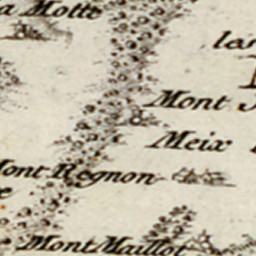 a Motte
Mont
Meix
Mont Regnon
Mont Maillot